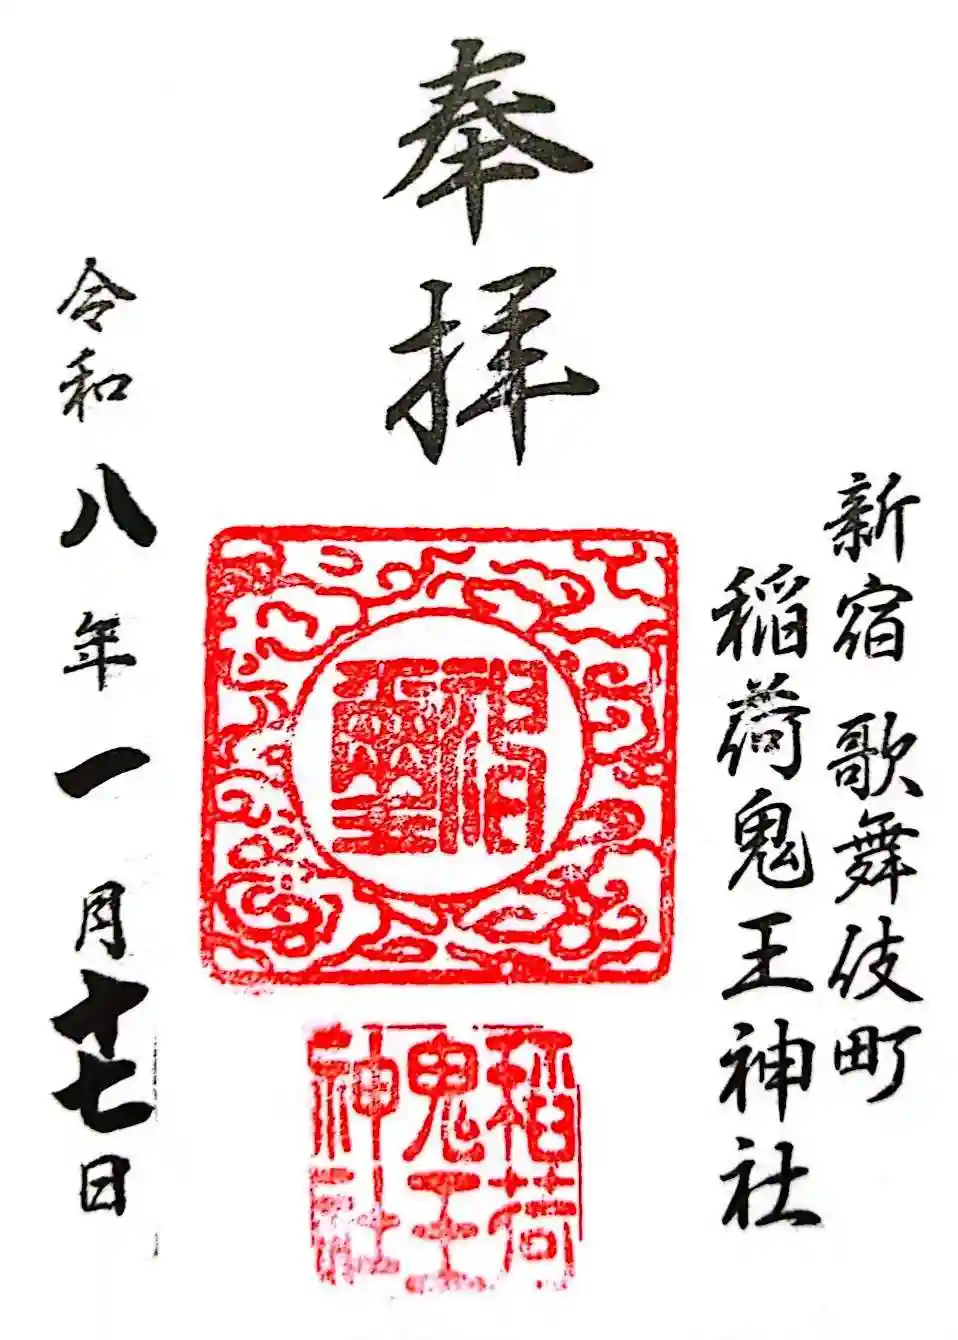 新宿 歌舞伎町
稲荷鬼王神社
奉拝
稲荷
鬼王
神社
令和八年一月十七日